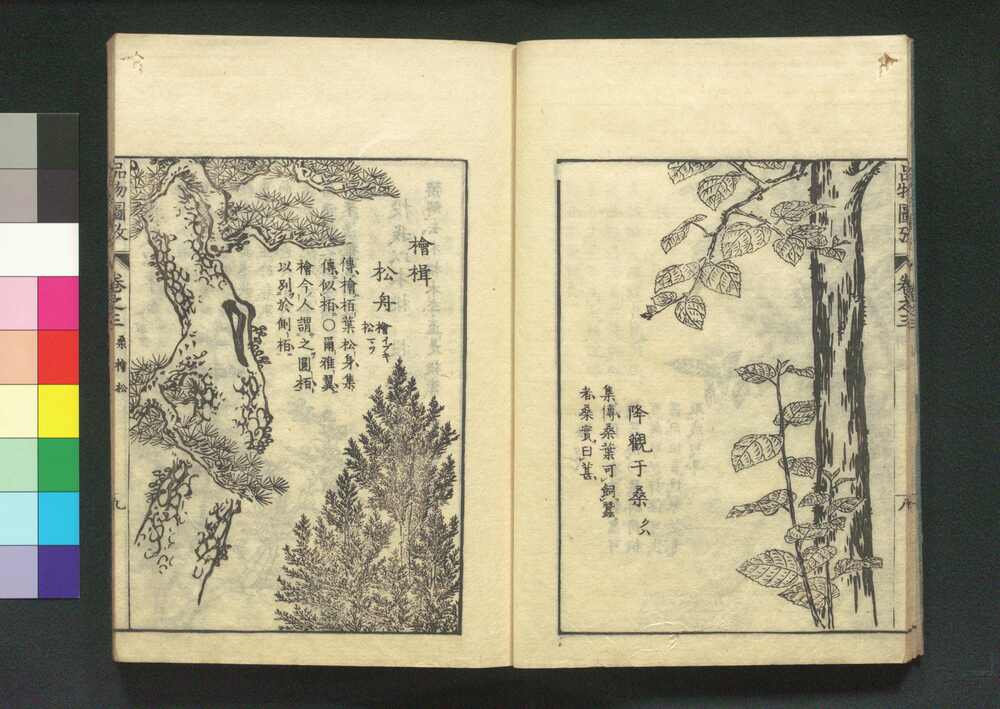 品物圖攷
卷之三
八
降觀于桑 クハ
集傳桑葉可飼蠶
者桑實曰葚
檜楫
松舟 檜イブキ
松マツ
傳檜栢葉松身集
傳似栢〇爾雅翼
檜今人謂之圓栢
以別於側栢
品物圖攷
卷之三
桑檜松
九